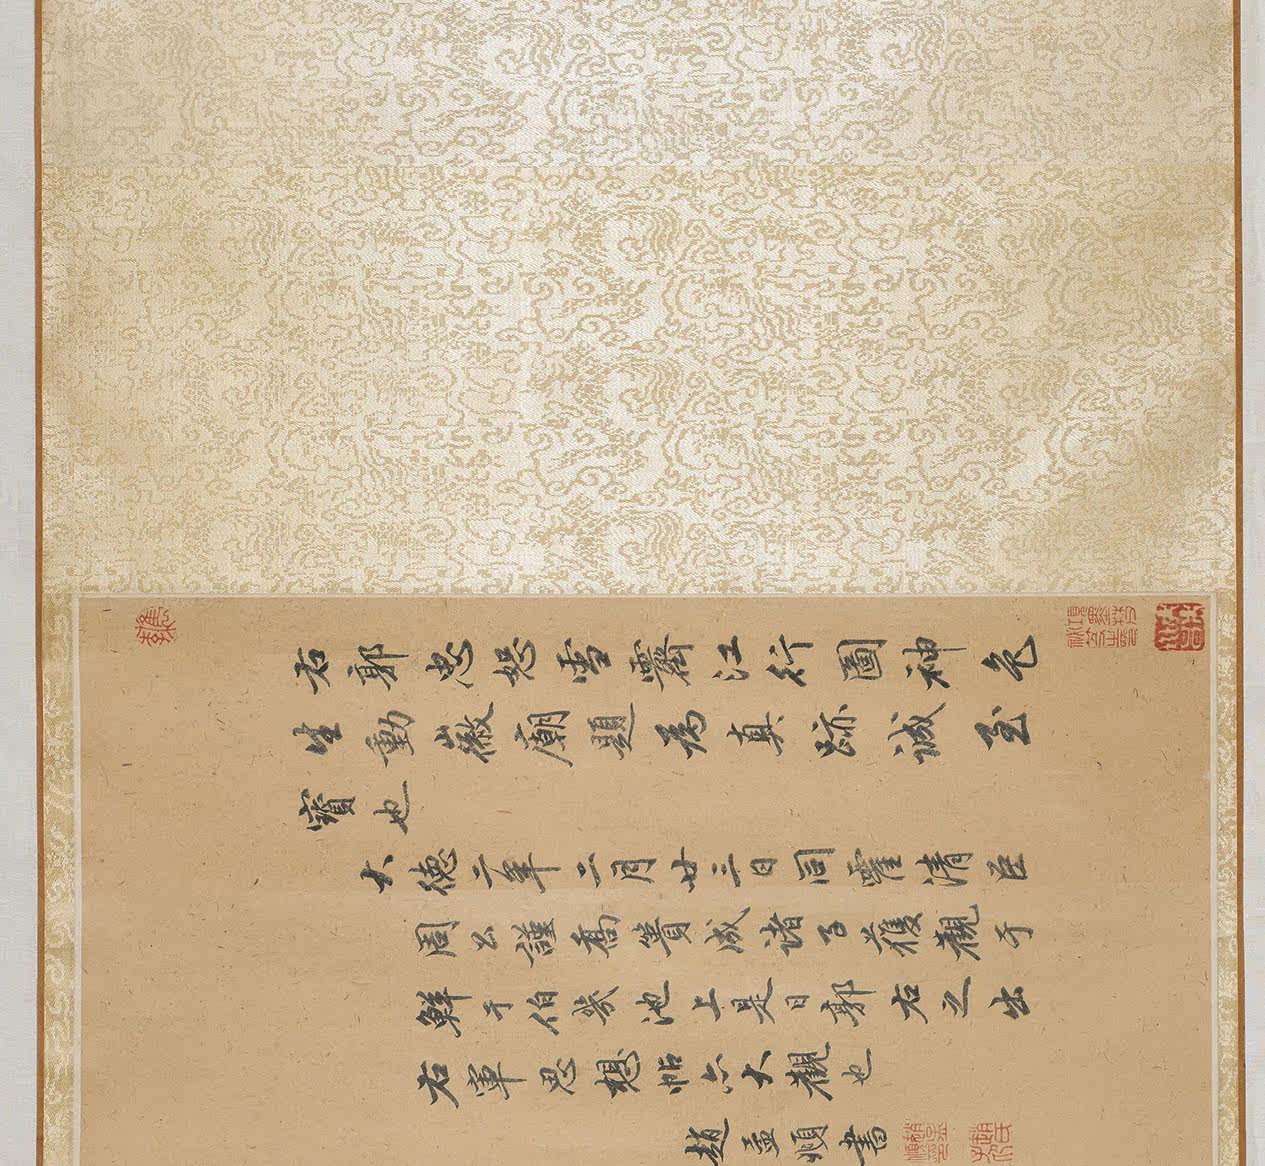 右郭忠恕雪霽江行圖神色
生動徽廟題為真跡誠至
寶也
大德二年二月廿三日同霍清臣
周公謹喬簣成諸子獲觀于
鮮于伯幾池上是日郭右之出
右軍思想帖亦大觀也
趙孟頫書